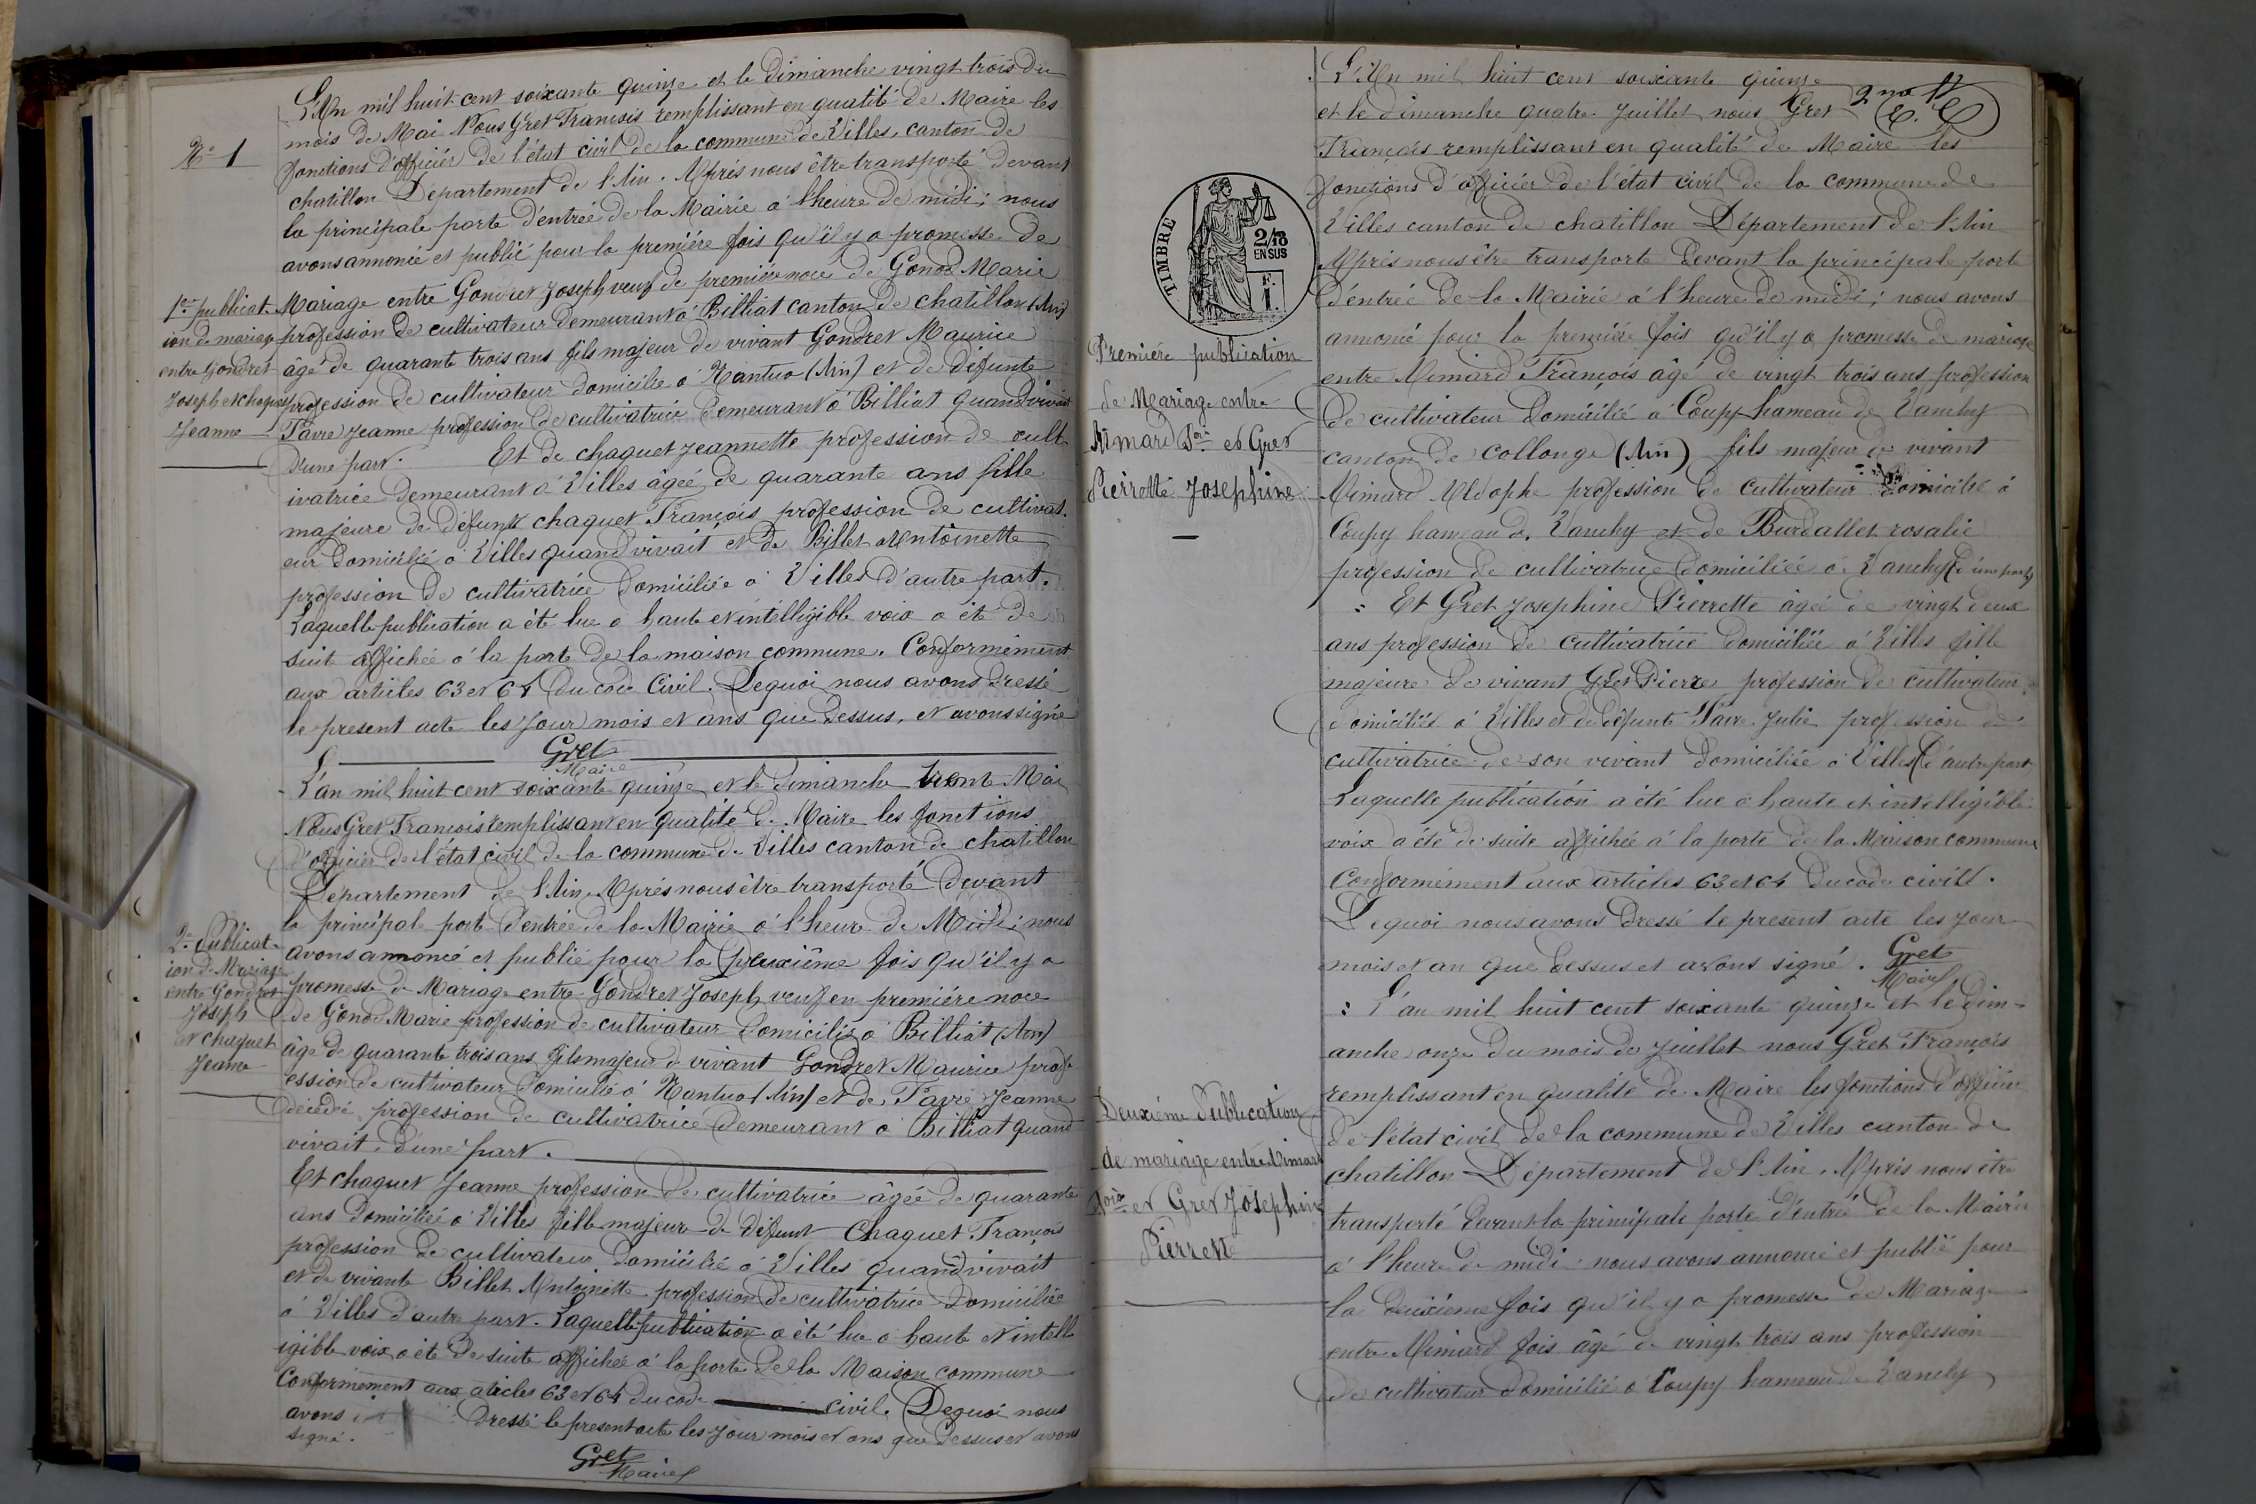 N° 1
L'An mil huit cent soixante quinze et le Dimanche vingt trois du
mois de Mai Nous Gret François remplissant en qualité de Maire les
fonctions d'officiér de l'état civil de la commune de Villes, canton de
chatillon Departement de l'Ain. Aprés nous être transporté devant
la principale porte d'entrée de la Mairie á l'heure de midi; nous
avons annoncé et publié pour la premiére fois qu'il y a promesse de
Mariage entre Gondret Joseph veuf de premiére noce de Gonod Marie
profession de cultivateur demeurant á Billiat canton de chatillon (Ain)
âgé de quarante trois ans fils majeur de vivant Gondret Maurice
profession de cultivateur domicilie á Nantua (Ain) et de défunte
Favre Jeanne profession de cultivatrice demeurant á Billiat quand vivait
d'une part. Et de chaquet Jeannette profession de cult
ivatrice demeurant á Villes âgée de quarante ans fille
majeure de défunt chaquet François profession de cultivat.
eur domicilié á Villes quand vivait et de Billet Antoinette
profession de cultivatrice domiciliée á Villes d'autre part.
Laquelle publication a été lue a haute et intélligible voix a été de
suite affichée á la porte de la maison commune. Conformément
aux articles 63 et 64 du code Civil. Dequoi nous avons dressé
le present acte les jour mois et ans que dessus, et avons signé
Gret
Maire
1re publicat
ion de mariage
entre Gondret
Joseph et chaquet
Jeanne
L'án mil huit cent soixante quinze et le dimanche trente Mai
Nous Gret François remplissant en qualité de Maire les fonctions
d'officiér de l'état civil de la commune de Villes canton de chatillon
Département de l'Ain. Aprés nous être transporté devant
la principale porte d'entrée de la Mairie á l'heure de Midi; nous
avons annoncé et publié pour la deuxiême fois qu'il y a
promesse de Mariage entre Gondret Joseph veuf en premiére noce
de Gonod Marie profession de cultivateur domicilié á Billiat (Ain)
âgé de quarante trois ans fils majeur de vivant Gondret Maurice prof
ession de cultivateur domicilié á Nantua (Ain) et de Favre Jeanne
décédée profession de cultivatrice demeurant á Billiat quand
vivait d'une part.
Et chaquet Jeanne profession de cultivatrice âgée de quarante
ans domiciliée á Villes fille majeure de défunt Chaquet François
profession de cultivateur domicilié á Villes quand vivait
et de vivante Billet Antoinette profession de cultivatrice domiciliée
á Villes d'autre part. Laquelle publication a été lue a haute et intell
igible voix a été de suite affichée á la porte de la Maison commune
Conformément aux aticles 63 et 64 du code civil. Dequoi nous
avons dressé le present acte les jour mois et ans que dessus et avons
signé.
Gret
Maire
2e Publicat
ion de Mariage
entre Gondret
Joseph
et chaquet
Jeanne
L'An mil huit cent soixante quinze
et le dimanche quatre Juillet nous Gret
François remplissant en qualité de Maire les
fonctions d'officiér de l'état civil de la commune de
Villes canton de chatillon Département de l'Ain
Aprés nous être transporté devant la principale porte
d'entrée de la Mairie á l'heure de midi; nous avons
annoncé pour la premiére fois qu'il y a promesse de mariage
entre Aimard François âgé de vingt trois ans profession
de cultivateur domicilié á Coupy hameau de Vanchy
canton de collonge (Ain) fils majeur de vivant
Aimard Aldophe profession de cultivateur domicilié á
Coupy hameau de Vanchy et de Burdallet rosalie
profession de cultivatrice domiciliée á Vanchy (d'une part)
: Et Gret Josephine Pierrette âgée de vingt deux
ans profession de cultivatrice domiciliée á Villes fille
majeure de vivant Gret Pierre profession de cultivateur
domicilié á Villes et de défunte Favre Julie profession de
cultivatrice de son vivant domiciliée á Villes (d'autre part)
Laquelle publication a été lue á haute et intelligible
voix a été de suite affichée á la porte de la Maison commune
Conformément aux articles 63 et 64 du code civil.
Dequoi nous avons dressé le present acte les jour
mois et an que dessus et avons signé. Gret
Maire
TIMBRE
2/10
EN SUS
1 F.
Premiére publication
de Mariage entre
Aimard Fois et Gret
Pierrette Josephine
: L'an mil huit cent soixante quinze et le dim-
anche onze du mois de Juillet nous Gret François
remplissant en qualité de Maire les fonctions d'officiér
de l'état civil de la commune de Villes canton de
chatillon Département de l'Ain. Aprés nous être
transporté devant la principale porte d'éntrée de la Mairie
á l'heure de midi nous avons annoncé et publié pour
la deuxiéme fois qu'il y a promesse de Mariage
entre Aimard fois âgé de vingt trois ans profession
de cultivateur domicilié á Coupy hameau de Vanchy
Deuxiéme Publication
de mariage entre Aimard
Fois et Gret Joséphine
Pierrette